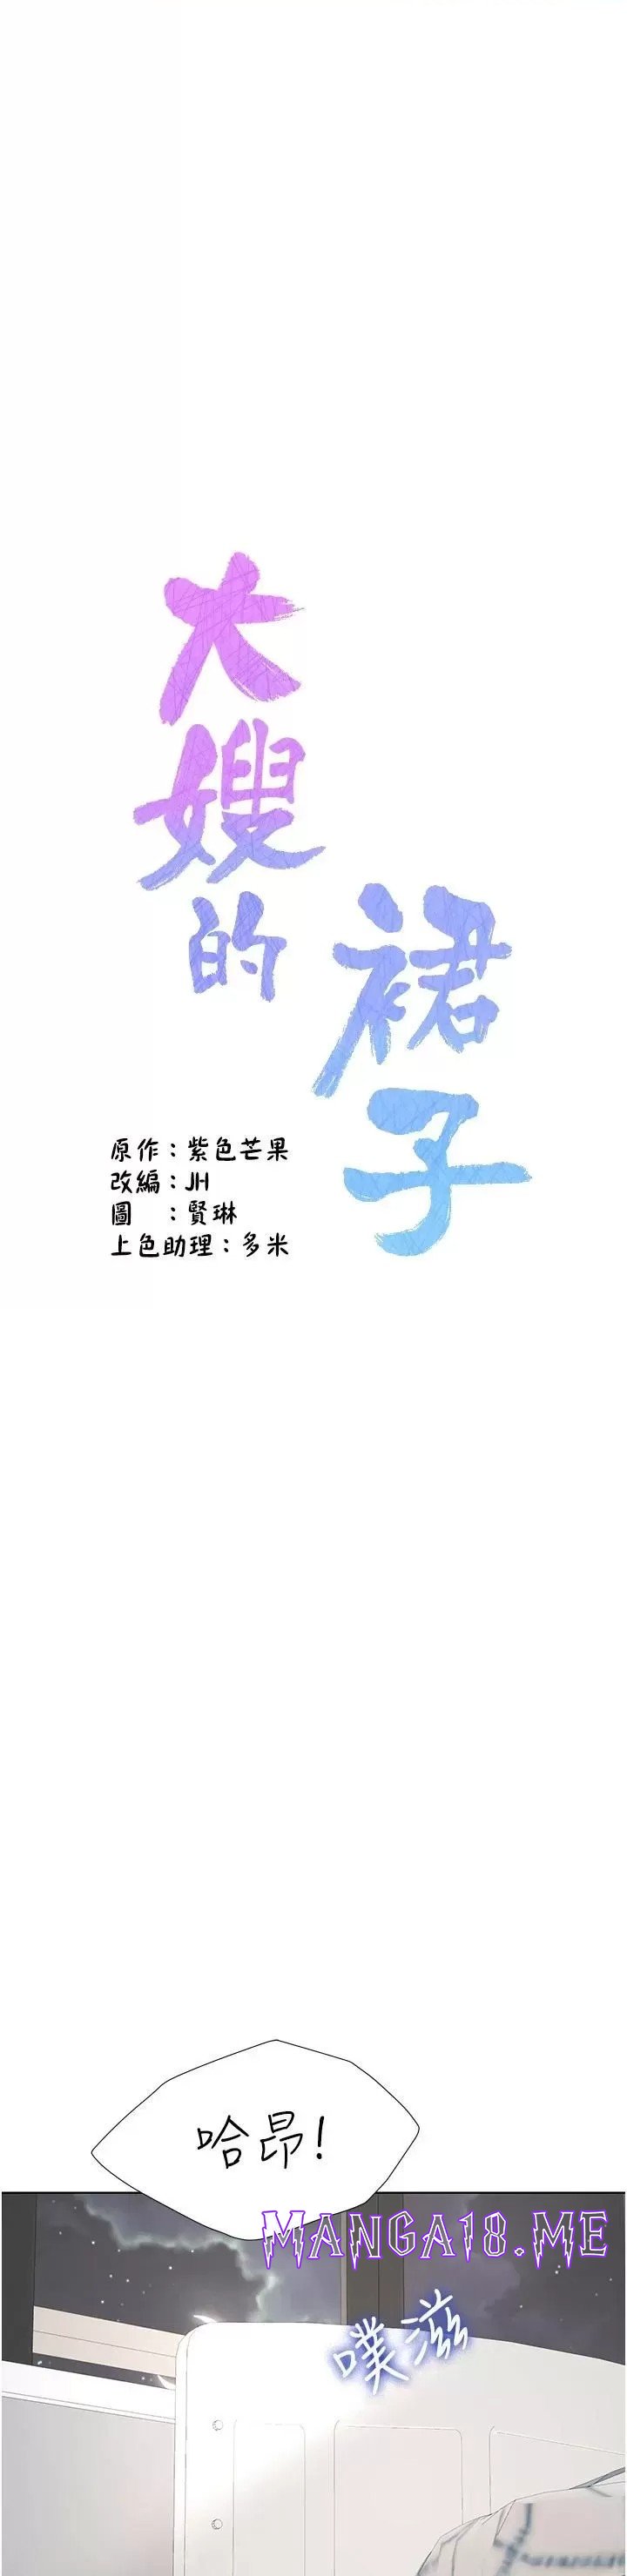 大嫂的
裙子
原作：紫色芒果
改編：JH
圖　：賢琳
上色助理：多米
哈昂！
MANGA18.ME
噗滋